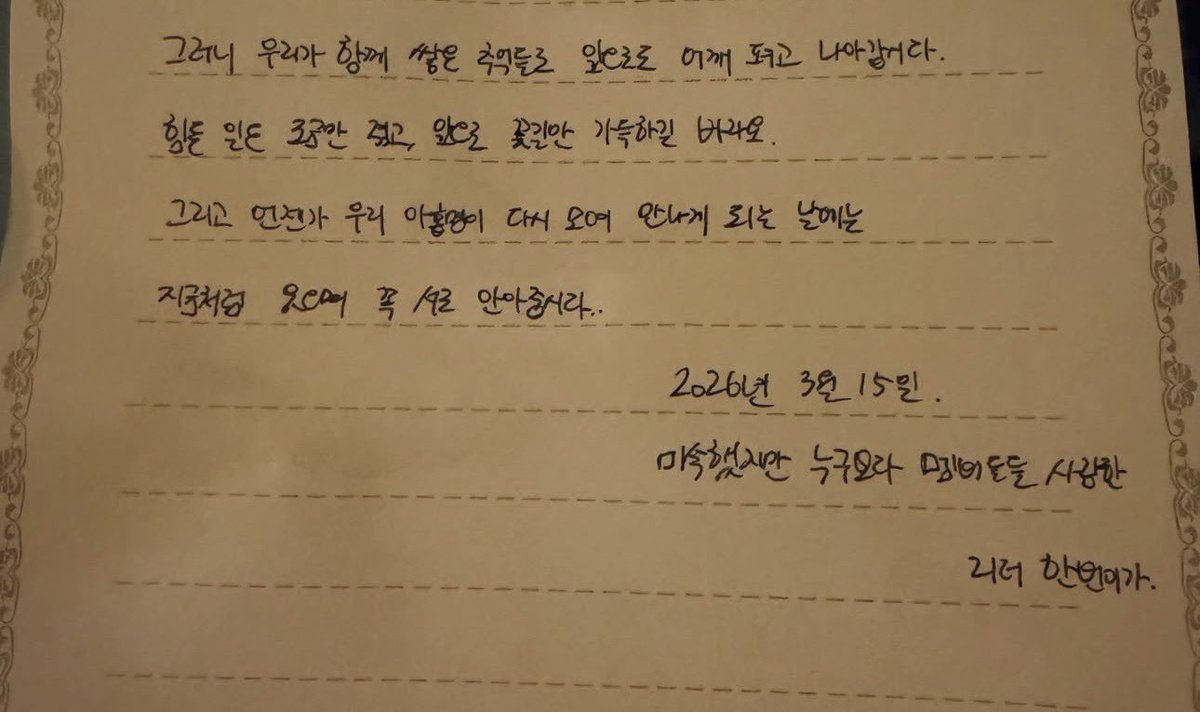 그러니 우리가 함께 쌓은 추억들로 앞으로도 어깨 펴고 나아갑시다.
힘든 일은 조금만 겪고, 앞으로 꽃길만 가득하길 바라오.
그리고 언젠가 우리 아홉명이 다시 모여 만나게 되는 날에는
지금처럼 웃으며 꼭 서로 안아줍시다..
2026년 3월 15일.
미숙했지만 누구보다 멤버들을 사랑한
리더 한빈이가.